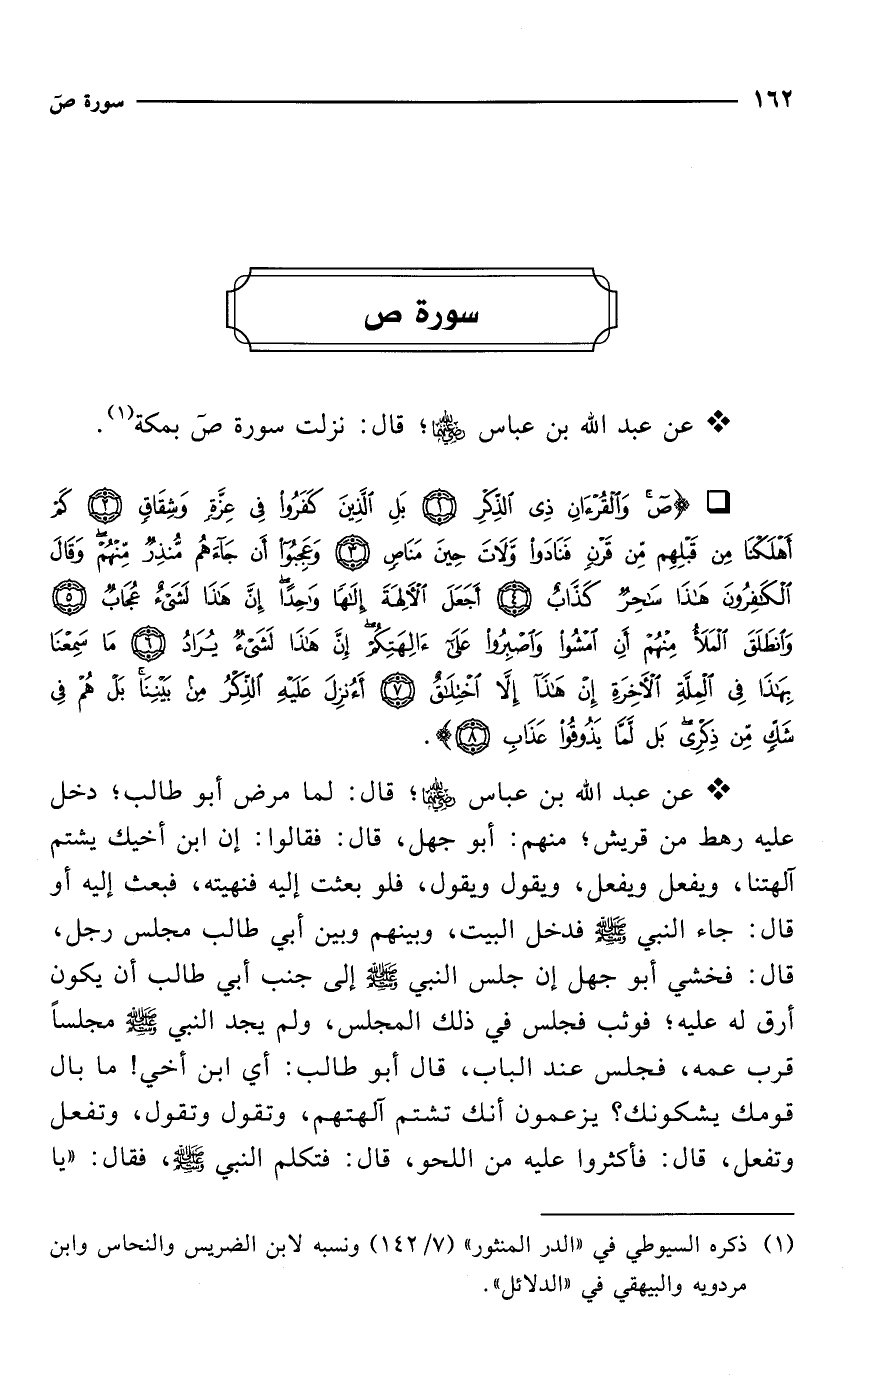 ١٦٢ سورة صٓ
سورة ص
❖ عن عبد الله بن عباس رضي الله عنهما؛ قال: نزلت سورة صٓ بمكة(١).
❑ ﴿صٓ ۚ وَٱلْقُرْءَانِ ذِى ٱلذِّكْرِ ﴿١﴾ بَلِ ٱلَّذِينَ كَفَرُوا۟ فِى عِزَّةٍ وَشِقَاقٍ ﴿٢﴾ كَمْ
أَهْلَكْنَا مِن قَبْلِهِم مِّن قَرْنٍ فَنَادَوا۟ وَّلَاتَ حِينَ مَنَاصٍ ﴿٣﴾ وَعَجِبُوٓا۟ أَن جَآءَهُم مُّنذِرٌ مِّنْهُمْ ۖ وَقَالَ
ٱلْكَـٰفِرُونَ هَـٰذَا سَـٰحِرٌ كَذَّابٌ ﴿٤﴾ أَجَعَلَ ٱلْـَٔالِهَةَ إِلَـٰهًا وَٰحِدًا ۖ إِنَّ هَـٰذَا لَشَىْءٌ عُجَابٌ ﴿٥﴾
وَٱنطَلَقَ ٱلْمَلَأُ مِنْهُمْ أَنِ ٱمْشُوا۟ وَٱصْبِرُوا۟ عَلَىٰٓ ءَالِهَتِكُمْ ۖ إِنَّ هَـٰذَا لَشَىْءٌ يُرَادُ ﴿٦﴾ مَا سَمِعْنَا
بِهَـٰذَا فِى ٱلْمِلَّةِ ٱلْـَٔاخِرَةِ إِنْ هَـٰذَآ إِلَّا ٱخْتِلَـٰقٌ ﴿٧﴾ أَءُنزِلَ عَلَيْهِ ٱلذِّكْرُ مِنۢ بَيْنِنَا ۚ بَلْ هُمْ فِى
شَكٍّ مِّن ذِكْرِى ۖ بَل لَّمَّا يَذُوقُوا۟ عَذَابِ ﴿٨﴾﴾.
❖ عن عبد الله بن عباس رضي الله عنهما؛ قال: لما مرض أبو طالب؛ دخل
عليه رهط من قريش؛ منهم: أبو جهل، قال: فقالوا: إن ابن أخيك يشتم
آلهتنا، ويفعل ويفعل، ويقول ويقول، فلو بعثت إليه فنهيته، فبعث إليه أو
قال: جاء النبي ﷺ فدخل البيت، وبينهم وبين أبي طالب مجلس رجل،
قال: فخشي أبو جهل إن جلس النبي ﷺ إلى جنب أبي طالب أن يكون
أرق له عليه؛ فوثب فجلس في ذلك المجلس، ولم يجد النبي ﷺ مجلساً
قرب عمه، فجلس عند الباب، قال أبو طالب: أي ابن أخي! ما بال
قومك يشكونك؟ يزعمون أنك تشتم آلهتهم، وتقول وتقول، وتفعل
وتفعل، قال: فأكثروا عليه من اللحو، قال: فتكلم النبي ﷺ، فقال: «يا
(١) ذكره السيوطي في «الدر المنثور» (٧/ ١٤٢) ونسبه لابن الضريس والنحاس وابن
مردويه والبيهقي في «الدلائل».